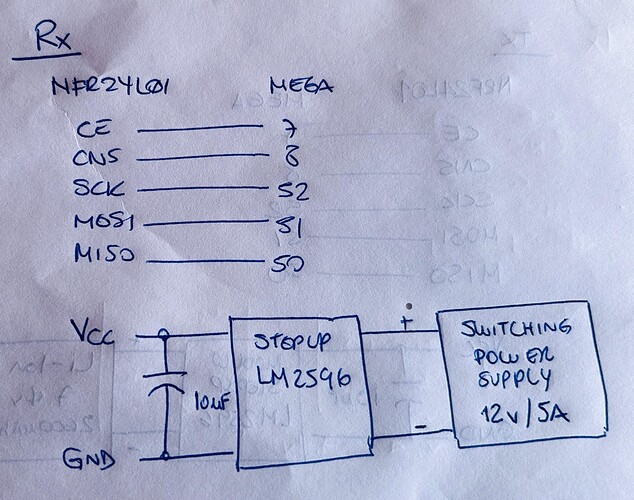 Rx
NFR24L01 MEGA
CE 7
CNS 8
SCK 52
MOSI 51
MISO 50
VCC
GND
10uF
STEPUP
LM2596
+
-
SWITCHING
POWER
SUPPLY
12V/5A